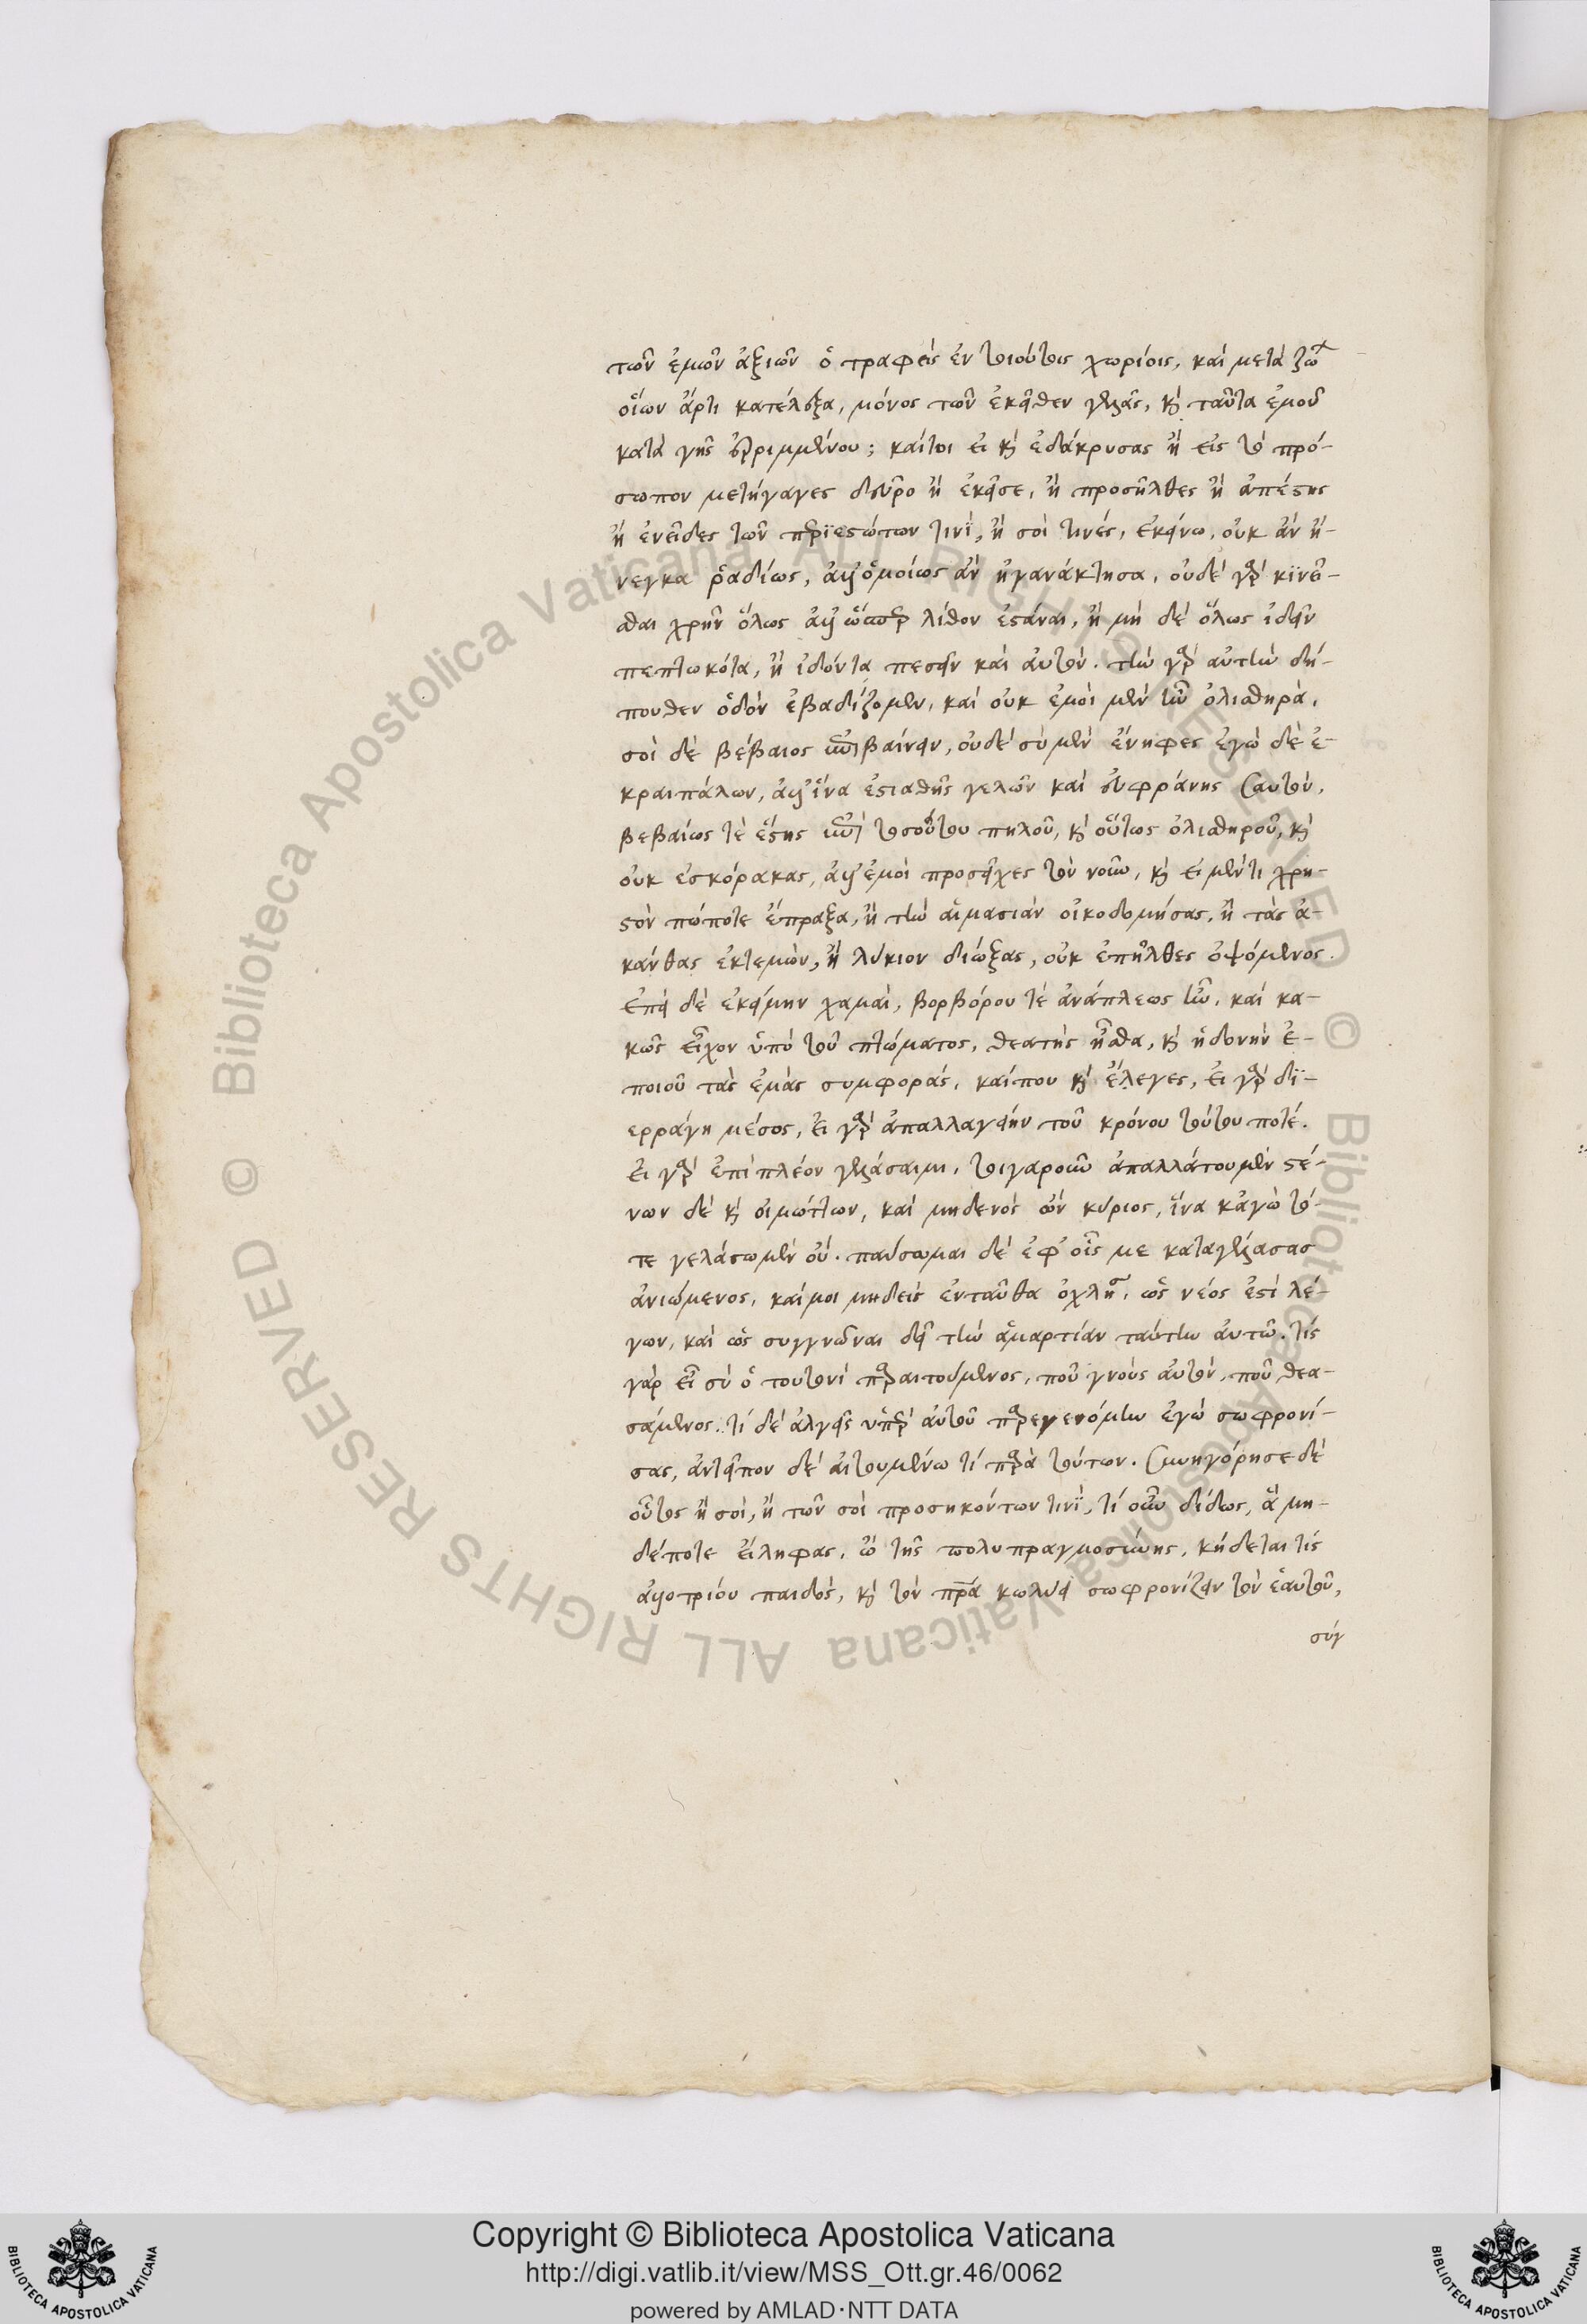 τῶν ἐμῶν ἀξιῶν ὁ τραφεὶς ἐν τοιούτοις χωρίοις, καὶ μετὰ
οἵων ἄρτι κατέλεξα, μόνος τῶν ἐκεῖθεν γελᾷς, καὶ ταῦτα ἐμοῦ
κατὰ γῆς ἐρριμμένου; καίτοι εἰ καὶ ἐδάκρυσας ἢ εἰς τὸ πρό-
σωπον μετήγαγες δεῦρο ἢ ἐκεῖσε, ἢ προσῆλθες ἢ ἀπέστης
ἢ ἐνεῖδες τῶν περιεστώτων τινὶ, ἢ σοὶ τινές, ἐκείνω, οὐκ ἂν ἤ-
νεγκα ῥαδίως, ἀλλ' ὁμοίως ἂν ἠγανάκτησα, οὐδὲ γὰρ κινεῖ-
σθαι χρῆν ὅλως ἀλλ' ὥσπερ λίθον ἑστάναι, ἢ μὴ δὲ ὅλως ἰδεῖν
πεπτωκότα, ἢ ἰδόντα πεσεῖν καὶ αὐτόν. τὴν γὰρ αὐτὴν δή-
πουθεν ὁδὸν ἐβαδίζομεν, καὶ οὐκ ἐμοὶ μὲν ἦν ὀλισθηρὰ,
σοὶ δὲ βέβαιος ἐπιβαίνειν, οὐδὲ σὺ μὲν ἔνηφες ἐγὼ δὲ ἐ-
κραιπάλων, ἀλλ' ἵνα ἑστιαθῇς γελῶν καὶ εὐφράνῃς σαυτόν,
βεβαίως τὲ ἔστης ἐπὶ τοσούτου πηλοῦ, καὶ οὕτως ὀλισθηροῦ, καὶ
οὐκ ἐσκόρακας, ἀλλ' ἐμοὶ προσεῖχες τὸν νοῦν, καὶ εἰ μέντι χρη-
στὸν πώποτε ἔπραξα, ἢ τὴν αἱμασιὰν οἰκοδομήσας, ἢ τὰς ἀ-
κάνθας ἐκτεμὼν, ἢ λύκιον διώξας, οὐκ ἐπῆλθες ὀψόμενος.
ἐπεὶ δὲ ἐκείμην χαμαὶ, βορβόρου τὲ ἀνάπλεως ἦν, καὶ κα-
κῶς εἶχον ὑπὸ τοῦ πτώματος, θεατὴς ἦσθα, καὶ ἡδονὴν ἐ-
ποιοῦ τὰς ἐμὰς συμφοράς, καίπου καὶ ἔλεγες, εἰ γὰρ δι-
ερράγη μέσος, εἰ γὰρ ἀπαλλαγείην τοῦ κρόνου τούτου ποτέ.
εἰ γὰρ ἐπὶ πλέον γελάσαιμι, τοιγαροῦν ἀπαλλάτου μὲν στέ-
νων δὲ καὶ οἰμώττων, καὶ μηδενὸς ὢν κύριος, ἵνα κἀγὼ τό-
τε γελάσω μὲν οὔ. παύσωμαι δὲ ἐφ' οἷς με καταγελάσας
ἀνιώμενος, καί μοι μηδεὶς ἐνταῦθα ὀχλῇ, ὡς νέος ἐστὶ λέ-
γων, καὶ ὡς συγγνῶναι δεῖ τὴν ἁμαρτίαν ταύτην αὐτῶ. τίς
γὰρ εἶ σὺ ὁ τουτονὶ παραιτούμενος, ποῦ γνοὺς αὐτόν, ποῦ θεα-
σάμενος. τί δὲ ἀλγεῖς ὑπὲρ αὐτοῦ παρεγενόμην ἐγὼ σωφρονί-
σας, ἀντεῖπον δὲ αἰτουμένω τί παρὰ τούτων. συνηγόρησε δὲ
οὗτος ἢ σοὶ, ἢ τῶν σοὶ προσηκόντων τινὶ, τί οὖν δίδως, ἃ μη-
δέποτε εἴληφας, ὢ τῆς πολυπραγμοσύνης, κήδεταί τις
ἀλλοτρίου παιδὸς, καὶ τὸν πατέρα κωλύει σωφρονίζειν τὸν ἑαυτοῦ,
σύγ
Copyright © Biblioteca Apostolica Vaticana
http://digi.vatlib.it/view/MSS_Ott.gr.46/0062
powered by AMLAD·NTT DATA
BIBLIOTECA APOSTOLICA VATICANA
BIBLIOTECA APOSTOLICA VATICANA
© Biblioteca Apostolica Vaticana ALL RIGHTS RESERVED
© Biblioteca Apostolica Vaticana ALL RIGHTS RESERVED